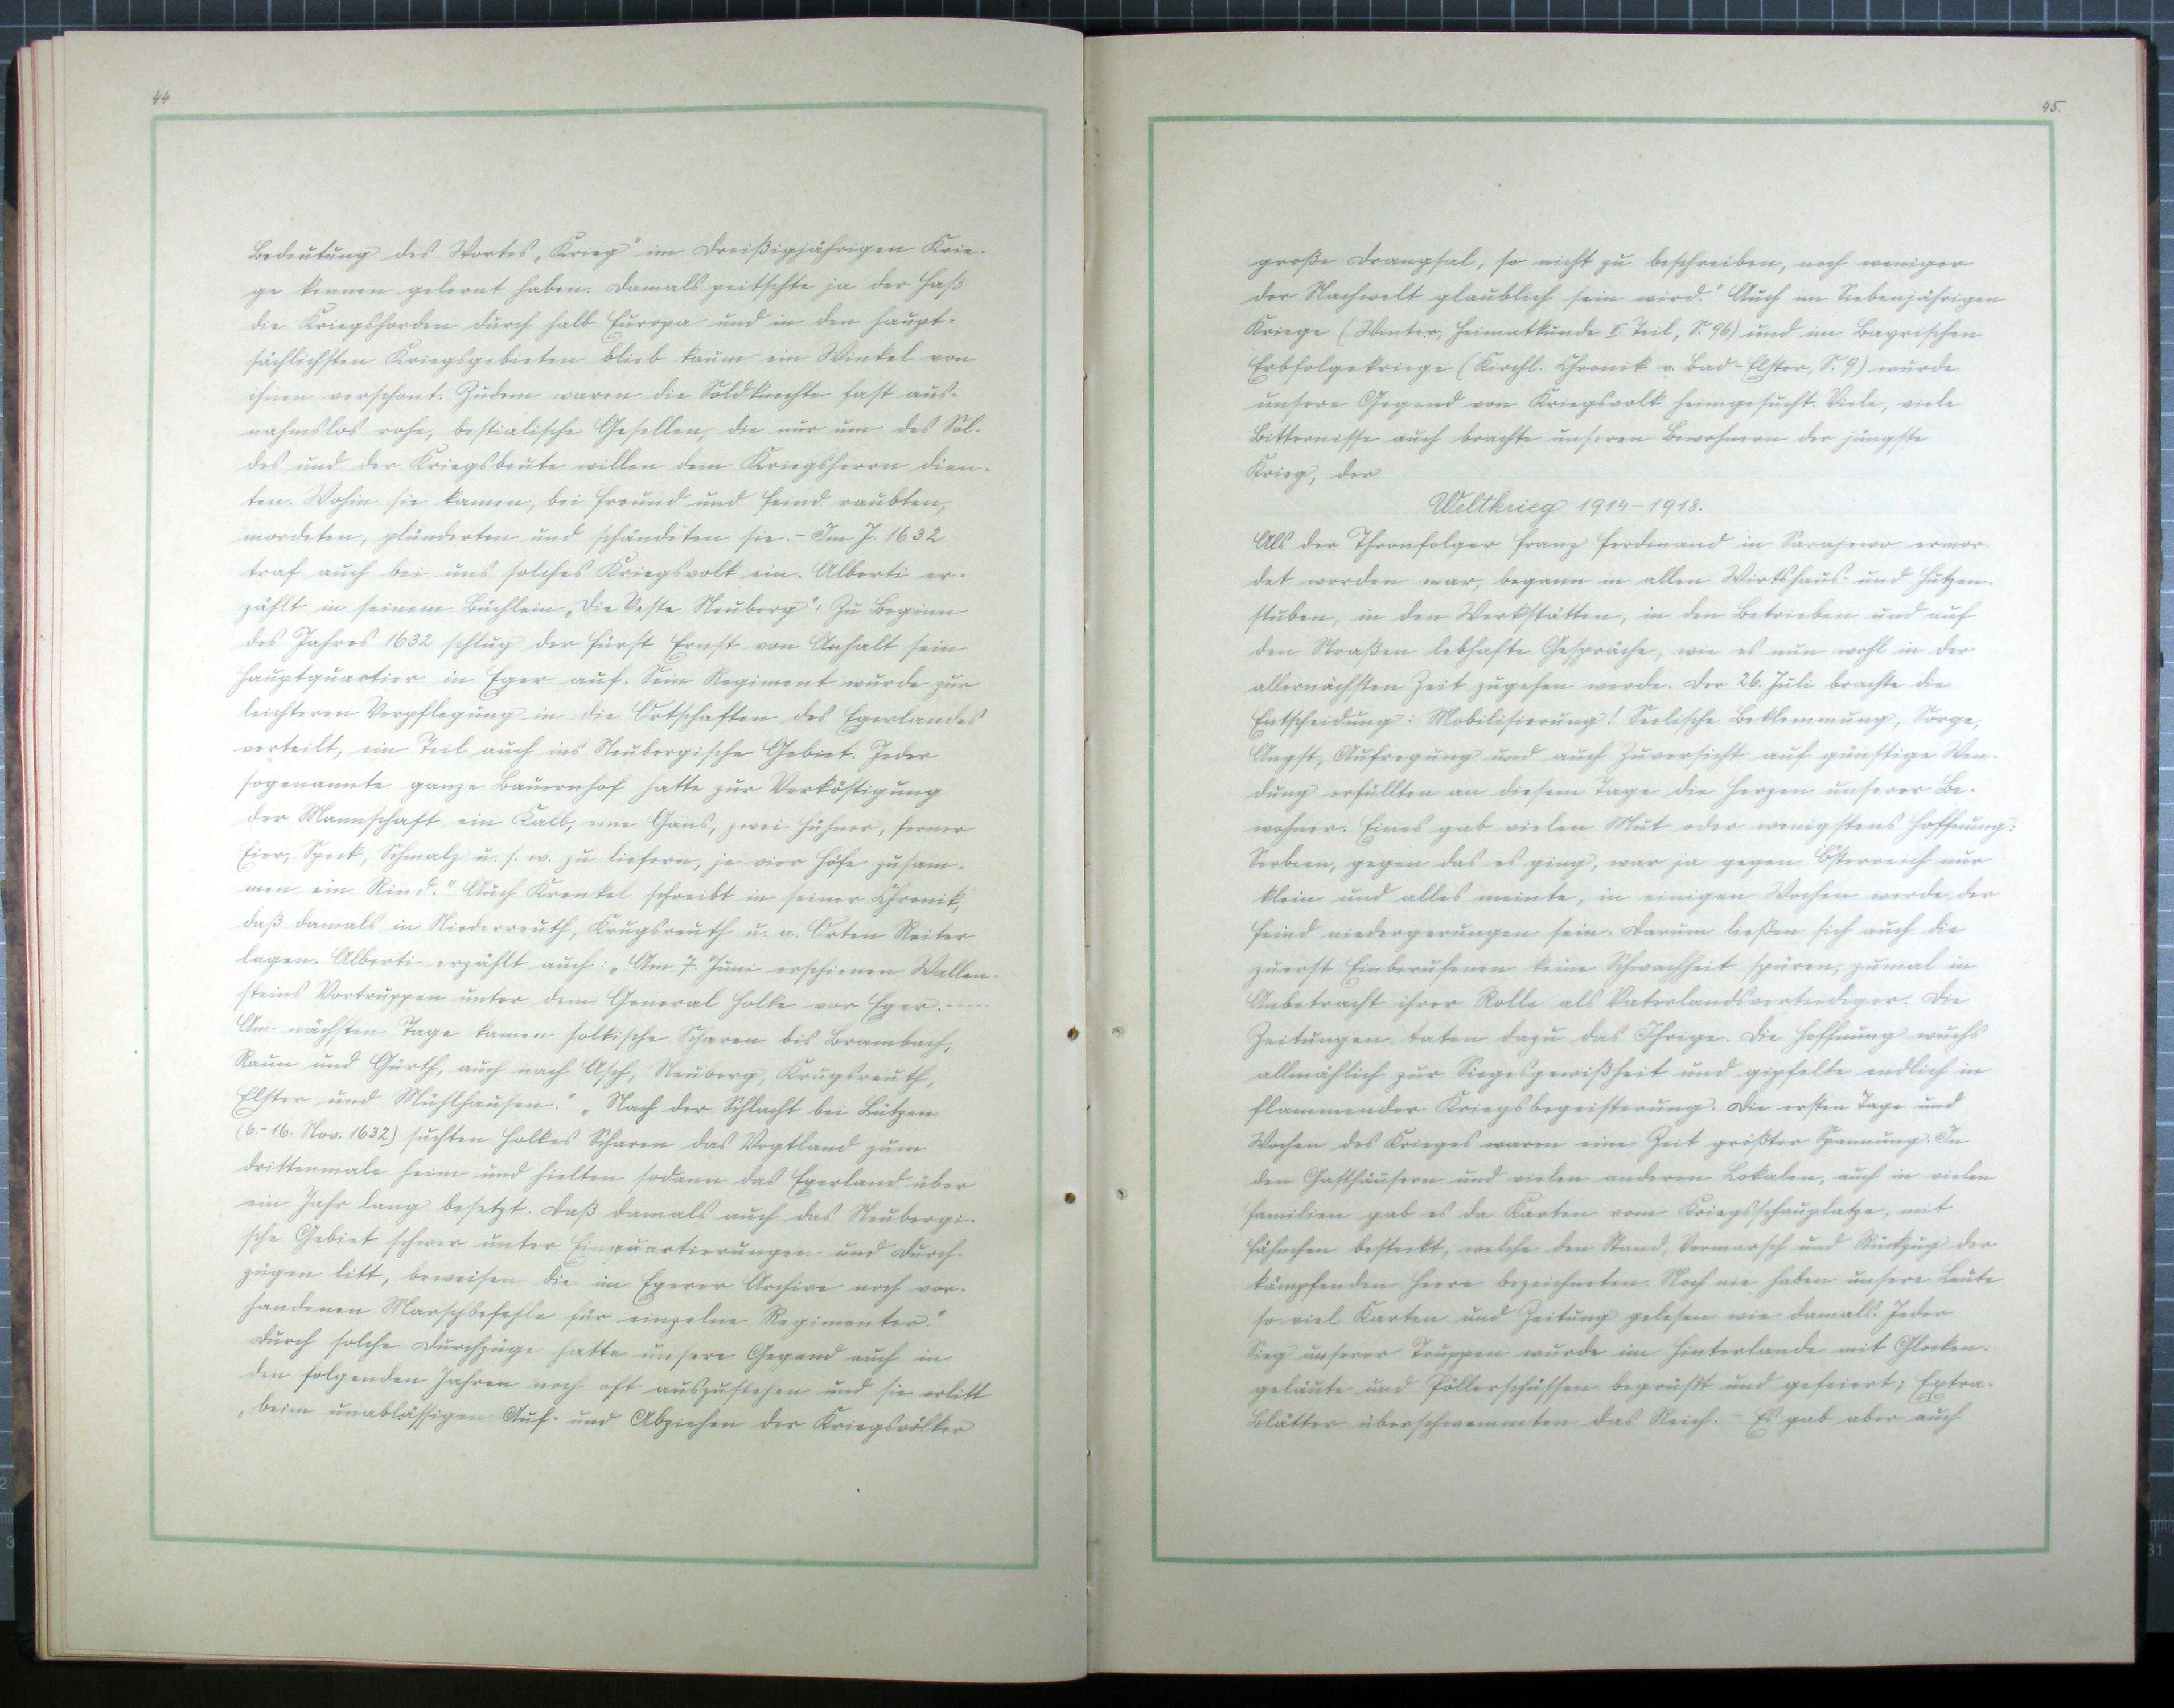 44
Bedeutung des Wortes „Krieg" im Dreißigjährigen Krie-
ge kennen gelernt haben. Damals peitschte ja der Haß
die Kriegshorden durch halb Europa und in den haupt-
sächlichsten Kriegsgebieten blieb kaum ein Winkel von
ihnen verschont. Zudem waren die Soldknechte fast aus-
nahmslos rohe, bestialische Gesellen, die nur um des Sol-
des und der Kriegsbeute willen dem Kriegsherrn dien-
ten. Wohin sie kamen, bei Freund und Feind raubten,
mordeten, plünderten und schändeten sie. - Im J. 1632
traf auch bei uns solches Kriegsvolk ein. Alberti er-
zählt in seinem Büchlein „Die Veste Neuberg": Zu Beginn
des Jahres 1632 schlug der Fürst Ernst von Anhalt sein
Hauptquartier in Eger auf. Sein Regiment wurde zur
leichteren Verpflegung in die Ortschaften des Egerlandes
verteilt, ein Teil auch ins Neubergische Gebiet. Jeder
sogenannte ganze Bauernhof hatte zur Verköstigung
der Mannschaft ein Kalb, eine Gans, zwei Hühner, ferner
Eier, Speck, Schmalz u. s. w. zu liefern, je vier Höfe zusam-
men ein Rind." Auch Krenkel schreibt in seiner Chronik,
daß damals in Niederreuth, Krugsreuth u. a. Orten Reiter
lagen. Alberti erzählt auch: „Am 7. Juni erschienen Wallen-
steins Vortruppen unter dem General Holke vor Eger. ----
Am nächsten Tage kamen holkische Scharen bis Brambach,
Raun und Gürth, auch nach Asch, Neuberg, Krugsreuth,
Elster und Mühlhausen." „Nach der Schlacht bei Lützen
(6.-16. Nov. 1632) suchten Holkes Scharen das Vogtland zum
drittenmale heim und hielten sodann das Egerland über
ein Jahr lang besetzt. Daß damals auch das Neubergi-
sche Gebiet schwer unter Einquartierungen und Durch-
zügen litt, beweisen die im Egerer Archive noch vor-
handenen Marschbefehle für einzelne Regimenter."
Durch solche Durchzüge hatte unsere Gegend auch in
den folgenden Jahren noch oft auszustehen und sie erlitt
„beim unablässigen Auf- und Abziehen der Kriegsvölker
45.
große Drangsal, so nicht zu beschreiben, noch weniger
der Nachwelt glaublich sein wird." Auch im Siebenjährigen
Kriege (Winter, Heimatkunde II. Teil, S. 96) und im Bayrischen
Erbfolgekriege (Kirchl. Chronik v. Bad-Elster, S. 9) wurde
unsere Gegend von Kriegsvolk heimgesucht. Viele, viele
Bitternisse auch brachte unseren Bewohnern der jüngste
Krieg, der
Weltkrieg 1914-1918.
Als der Thronfolger Franz Ferdinand in Sarajewo ermor-
det worden war, begann in allen Wirtshaus- und Hutzen-
stuben, in den Werkstätten, in den Betrieben und auf
den Straßen lebhafte Gespräche, wie es nun wohl in der
allernächsten Zeit zugehen werde. Der 26. Juli brachte die
Entscheidung: Mobilisierung! Seelische Beklemmung, Sorge,
Angst, Aufregung und auch Zuversicht auf günstige Wen-
dung erfüllten an diesem Tage die Herzen unserer Be-
wohner. Eines gab vielen Mut oder wenigstens Hoffnung:
Serbien, gegen das es ging, war ja gegen Österreich nur
klein und alles meinte, in einigen Wochen werde der
Feind niedergerungen sein. Darum ließen sich auch die
zuerst Einberufenen keine Schwachheit spüren, zumal in
Anbetracht ihrer Rolle als Vaterlandsverteidiger. Die
Zeitungen taten dazu das Ihrige. Die Hoffnung wuchs
allmählich zur Siegesgewißheit und gipfelte endlich in
flammender Kriegsbegeisterung. Die ersten Tage und
Wochen des Krieges waren eine Zeit größter Spannung. In
den Gasthäusern und vielen anderen Lokalen, auch in vielen
Familien gab es da Karten vom Kriegsschauplatze, mit
Fähnchen besteckt, welche den Stand, Vormarsch und Rückzug der
kämpfenden Heere bezeichneten. Noch nie haben unsere Leute
so viel Karten und Zeitung gelesen wie damals. Jeder
Sieg unserer Truppen wurde im Hinterlande mit Glocken-
geläute und Pöllerschüssen begrüßt und gefeiert; Extra-
Blätter überschwemmten das Reich. - Es gab aber auch